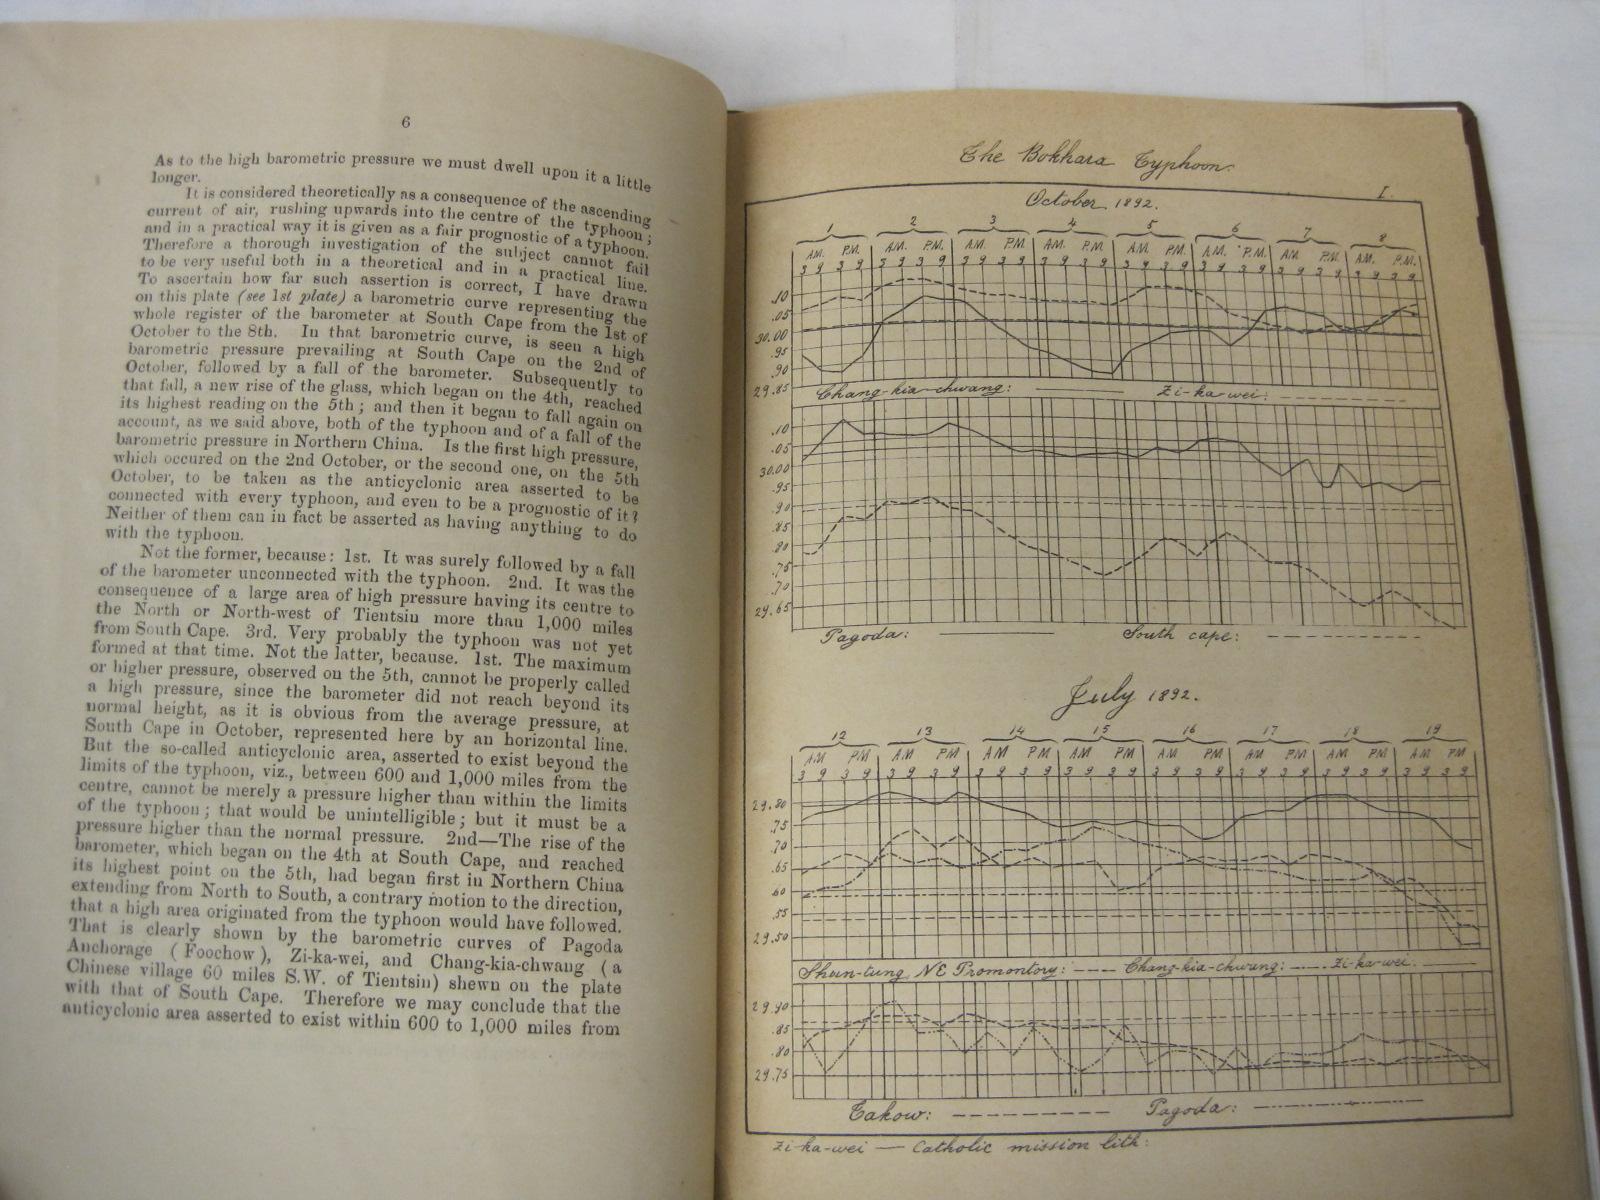 6
As to the high barometric pressure we must dwell upon it a little
longer.
It is considered theoretically as a consequence of the ascending
current of air, rushing upwards into the centre of the typhoon;
and in a practical way it is given as a fair prognostic of a typhoon.
Therefore a thorough investigation of the subject cannot fail
to be very useful both in a theoretical and in a practical line.
To ascertain how far such assertion is correct, I have drawn
on this plate (see 1st plate) a barometric curve representing the
whole register of the barometer at South Cape from the 1st of
October to the 8th. In that barometric curve, is seen a high
barometric pressure prevailing at South Cape on the 2nd of
October, followed by a fall of the barometer. Subsequently to
that fall, a new rise of the glass, which began on the 4th, reached
its highest reading on the 5th; and then it began to fall again on
account, as we said above, both of the typhoon and of a fall of the
barometric pressure in Northern China. Is the first high pressure,
which occured on the 2nd October, or the second one, on the 5th
October, to be taken as the anticyclonic area asserted to be
connected with every typhoon, and even to be a prognostic of it?
Neither of them can in fact be asserted as having anything to do
with the typhoon.
Not the former, because: 1st. It was surely followed by a fall
of the barometer unconnected with the typhoon. 2nd. It was the
consequence of a large area of high pressure having its centre to
the North or North-west of Tientsin more than 1,000 miles
from South Cape. 3rd. Very probably the typhoon was not yet
formed at that time. Not the latter, because. 1st. The maximum
or higher pressure, observed on the 5th, cannot be properly called
a high pressure, since the barometer did not reach beyond its
normal height, as it is obvious from the average pressure, at
South Cape in October, represented here by an horizontal line.
But the so-called anticyclonic area, asserted to exist beyond the
limits of the typhoon, viz., between 600 and 1,000 miles from the
centre, cannot be merely a pressure higher than within the limits
of the typhoon; that would be unintelligible; but it must be a
pressure higher than the normal pressure. 2nd—The rise of the
barometer, which began on the 4th at South Cape, and reached
its highest point on the 5th, had began first in Northern China
extending from North to South, a contrary motion to the direction,
that a high area originated from the typhoon would have followed.
That is clearly shown by the barometric curves of Pagoda
Anchorage (Foochow), Zi-ka-wei, and Chang-kia-chwang (a
Chinese village 60 miles S.W. of Tientsin) shewn on the plate
with that of South Cape. Therefore we may conclude that the
anticyclonic area asserted to exist within 600 to 1,000 miles from
The Bokhara Typhoon.
I.
October 1892.
1 2 3 4 5 6 7 8
A.M. P.M. A.M. P.M. A.M. P.M. A.M. P.M. A.M. P.M. A.M. P.M. A.M. P.M. A.M. P.M.
3 9 3 9 3 9 3 9 3 9 3 9 3 9 3 9 3 9 3 9 3 9 3 9 3 9 3 9 3 9 3 9
.10
.05
30.00
.95
.90
29.85
Chang-kia-chwang: Zi-ka-wei:
.10
.05
30.00
.95
.90
.85
.80
.75
.70
29.65
Pagoda: South cape:
July 1892.
12 13 14 15 16 17 18 19
A.M P.M A.M P.M A.M P.M A.M P.M A.M P.M A.M P.M A.M P.M A.M P.M
3 9 3 9 3 9 3 9 3 9 3 9 3 9 3 9 3 9 3 9 3 9 3 9 3 9 3 9 3 9 3 9
29.80
.75
.70
.65
.60
.55
29.50
Shun-tung NE Promontory: Chang-kia-chwang: Zi-ka-wei:
29.90
.85
.80
29.75
Takow: Pagoda:
Zi-ka-wei — Catholic mission lith: